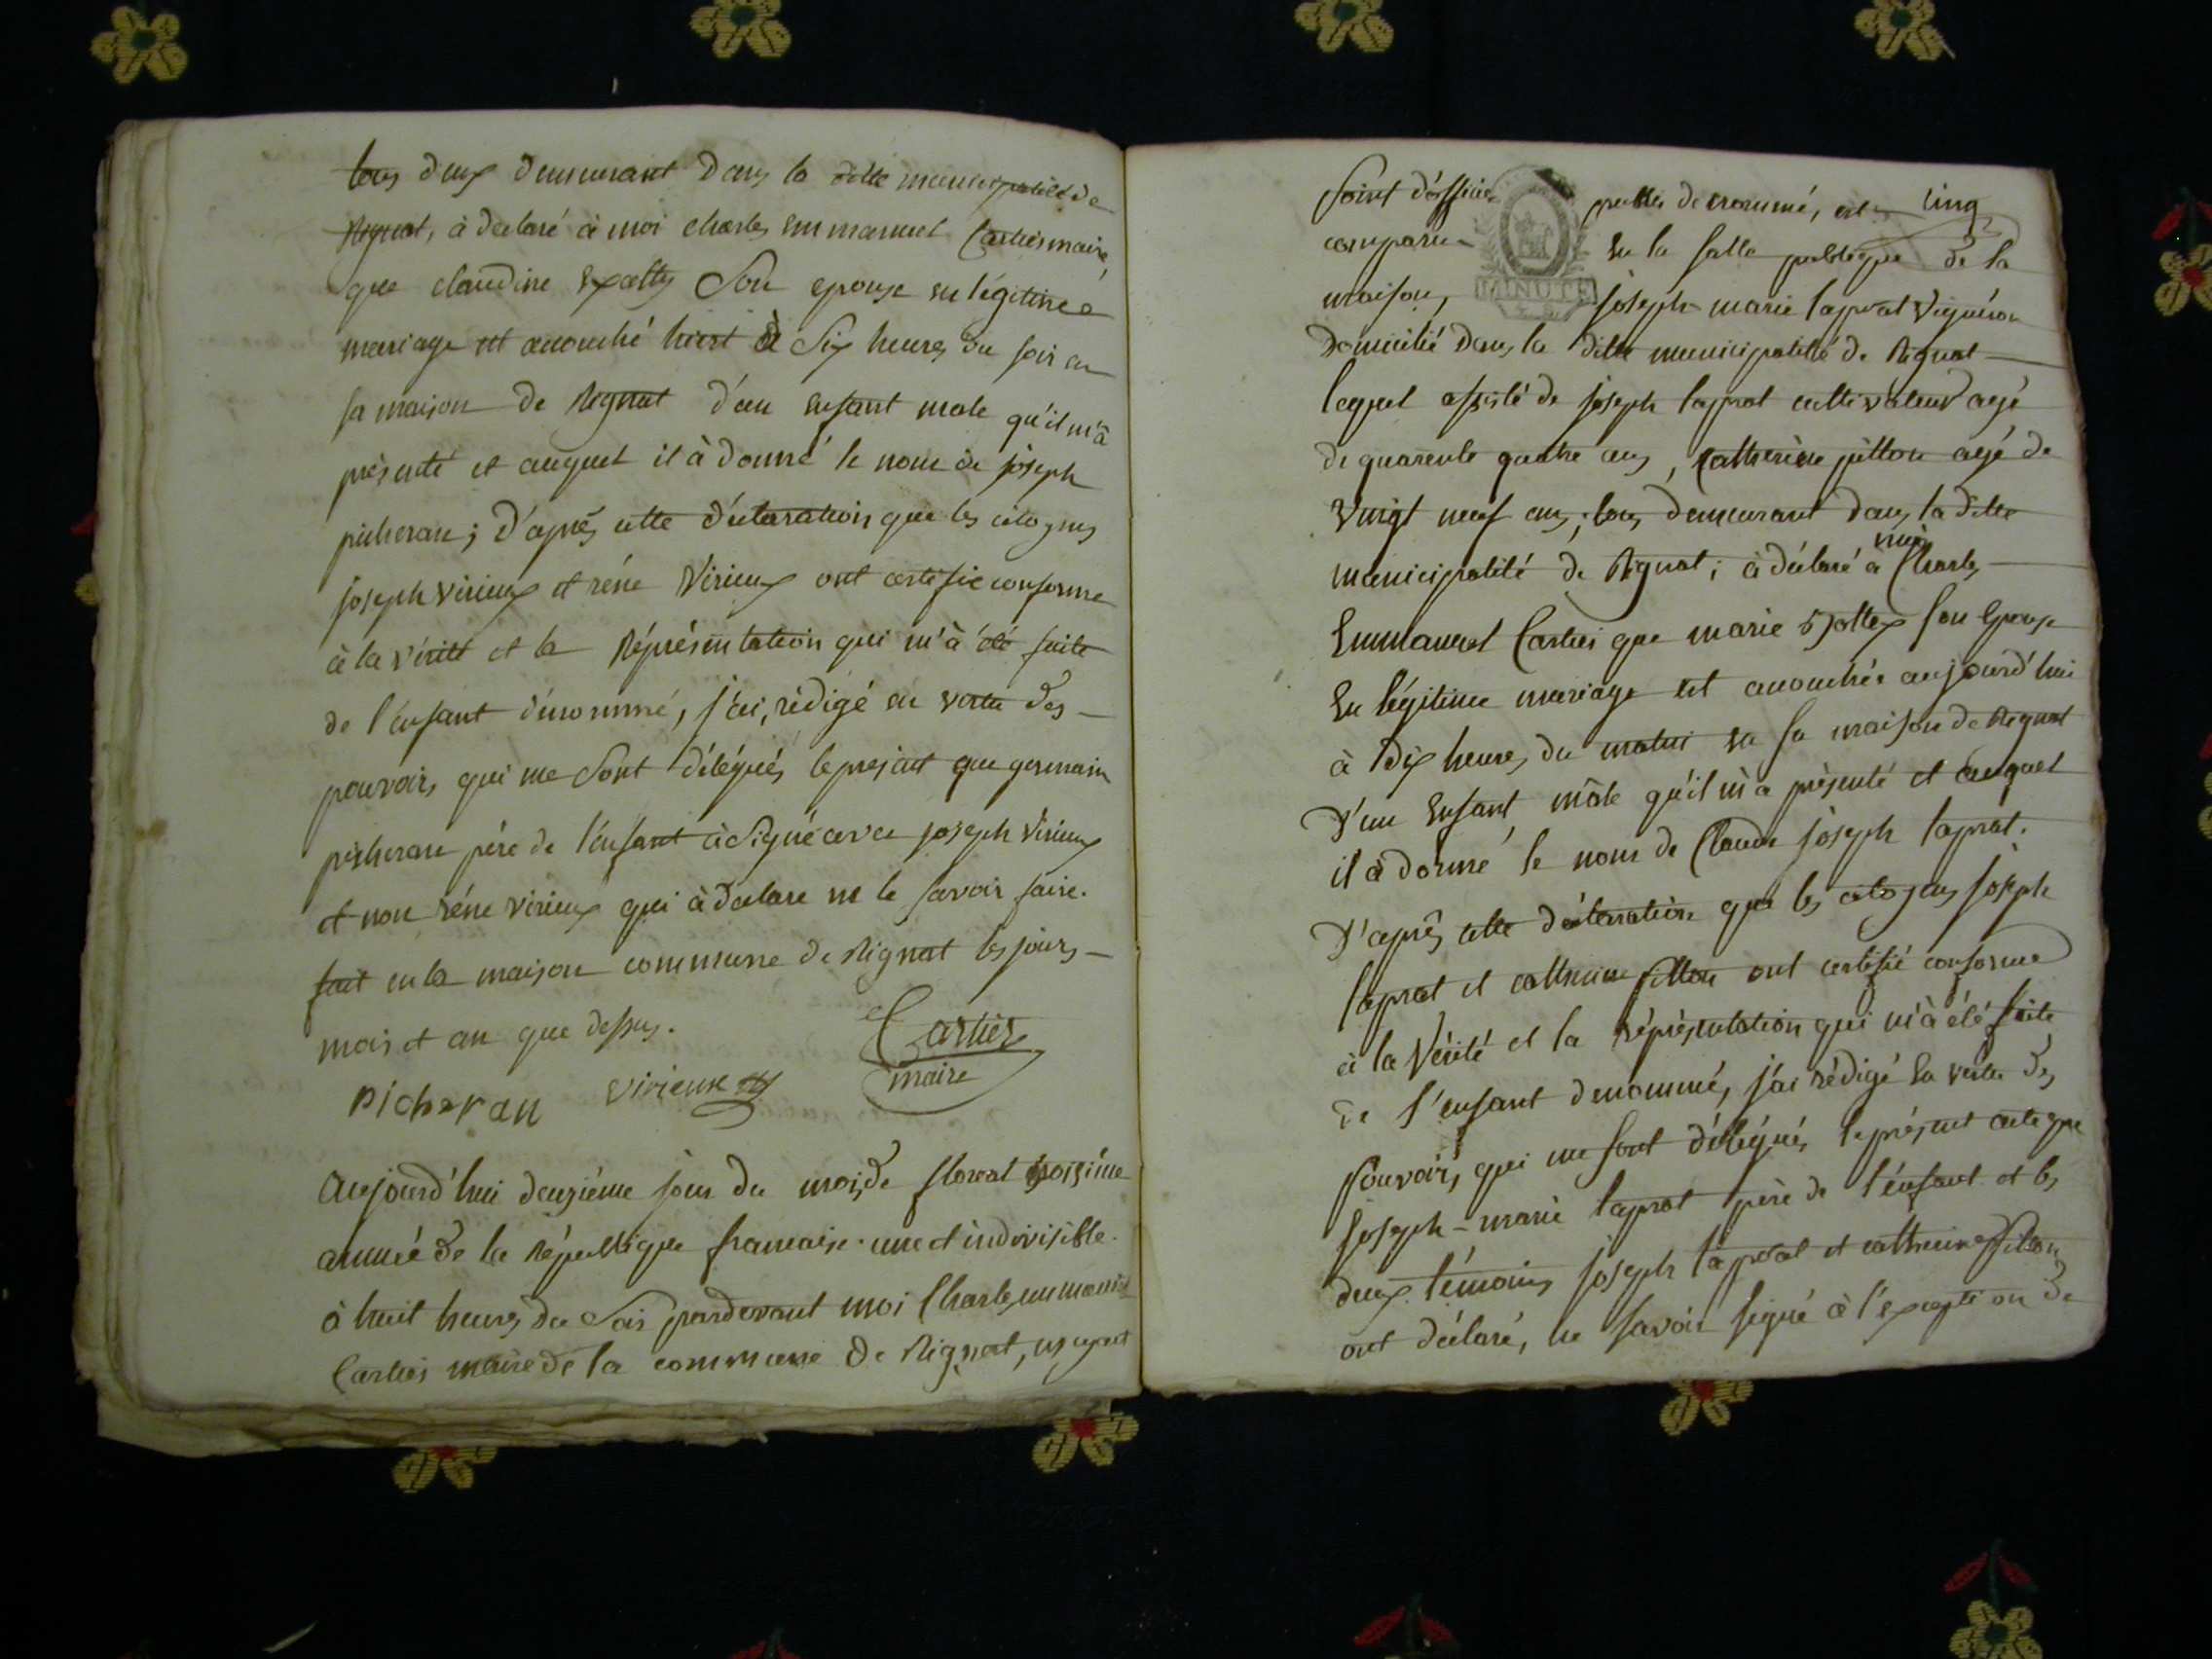 tous deux demeurant dans la ditte municipalité de
Rignat, à declaré à moi charles emmanuel Cartier maire,
que claudine son epouse en légitime
mariage est acouché hiert à Six heures du soir en
sa maison de Regnat d'un enfant male qu'il m'à
présenté et auquel il à donné le nom de joseph
picheran; d'après cette déclaration que les citoyens
joseph virieux et réne Virieux ont certifié conforme
à la vérité et la Réprésentation qui m'à été faite
de l'enfant dénommé, j'ai, rédigé en vertu des
pouvoirs qui me Sont délégués le present que germain
picheran pére de l'enfant à Signé avec joseph Virieux
et non réne virieux qui à declare ne le savoir faire.
fait en la maison commune de Rignat les jours
mois et an que dessus.
Cartier
maire
Picheran virieux
Aujourd'hui deuxiéme jour du mois de floreal troisiéme
année de la République francaise une et indivisible.
à huit heures du Soir pardevant moi Charles emmanuel
Cartier maire de la commune de Rignat, n'y ayant
point d'officier public de nommé, est cinq
comparu en la salle publique de la
MINUTE
maison, joseph-marie laprat Vigneron
domicilié dans la ditte municipalité de Rignat
lequel assisté de joseph laprat cultivateur agé
de quarente quatre ans, Catherine pitton agé de
vingt neuf ans, tous demeurant dans la ditte
moi
municipalité de Rignat; à déclaré à Charles
Emmanuel Cartier que marie son Epouse
En légitime mariage est acouchée aujourd'hui
à dix heures du matin en sa maison de Regnat
D'un Enfant mâle qu'il m'a présenté et auquel
il à donné le nom de Claude joseph laprat.
D'après cette déclaration que les citoyens joseph
laprat et catherine pitton ont certifié conforme
à la Vérité et la réprésentation qui m'à été faite
de l'enfant denommé, j'ai rédigé En vertu des
pouvoirs qui me sont délégués le présent acte que
joseph-marie laprat pére de l'énfant et les
deux témoins joseph laprat et catherine pitton
ont déclaré, ne savoir signé à l'exception de